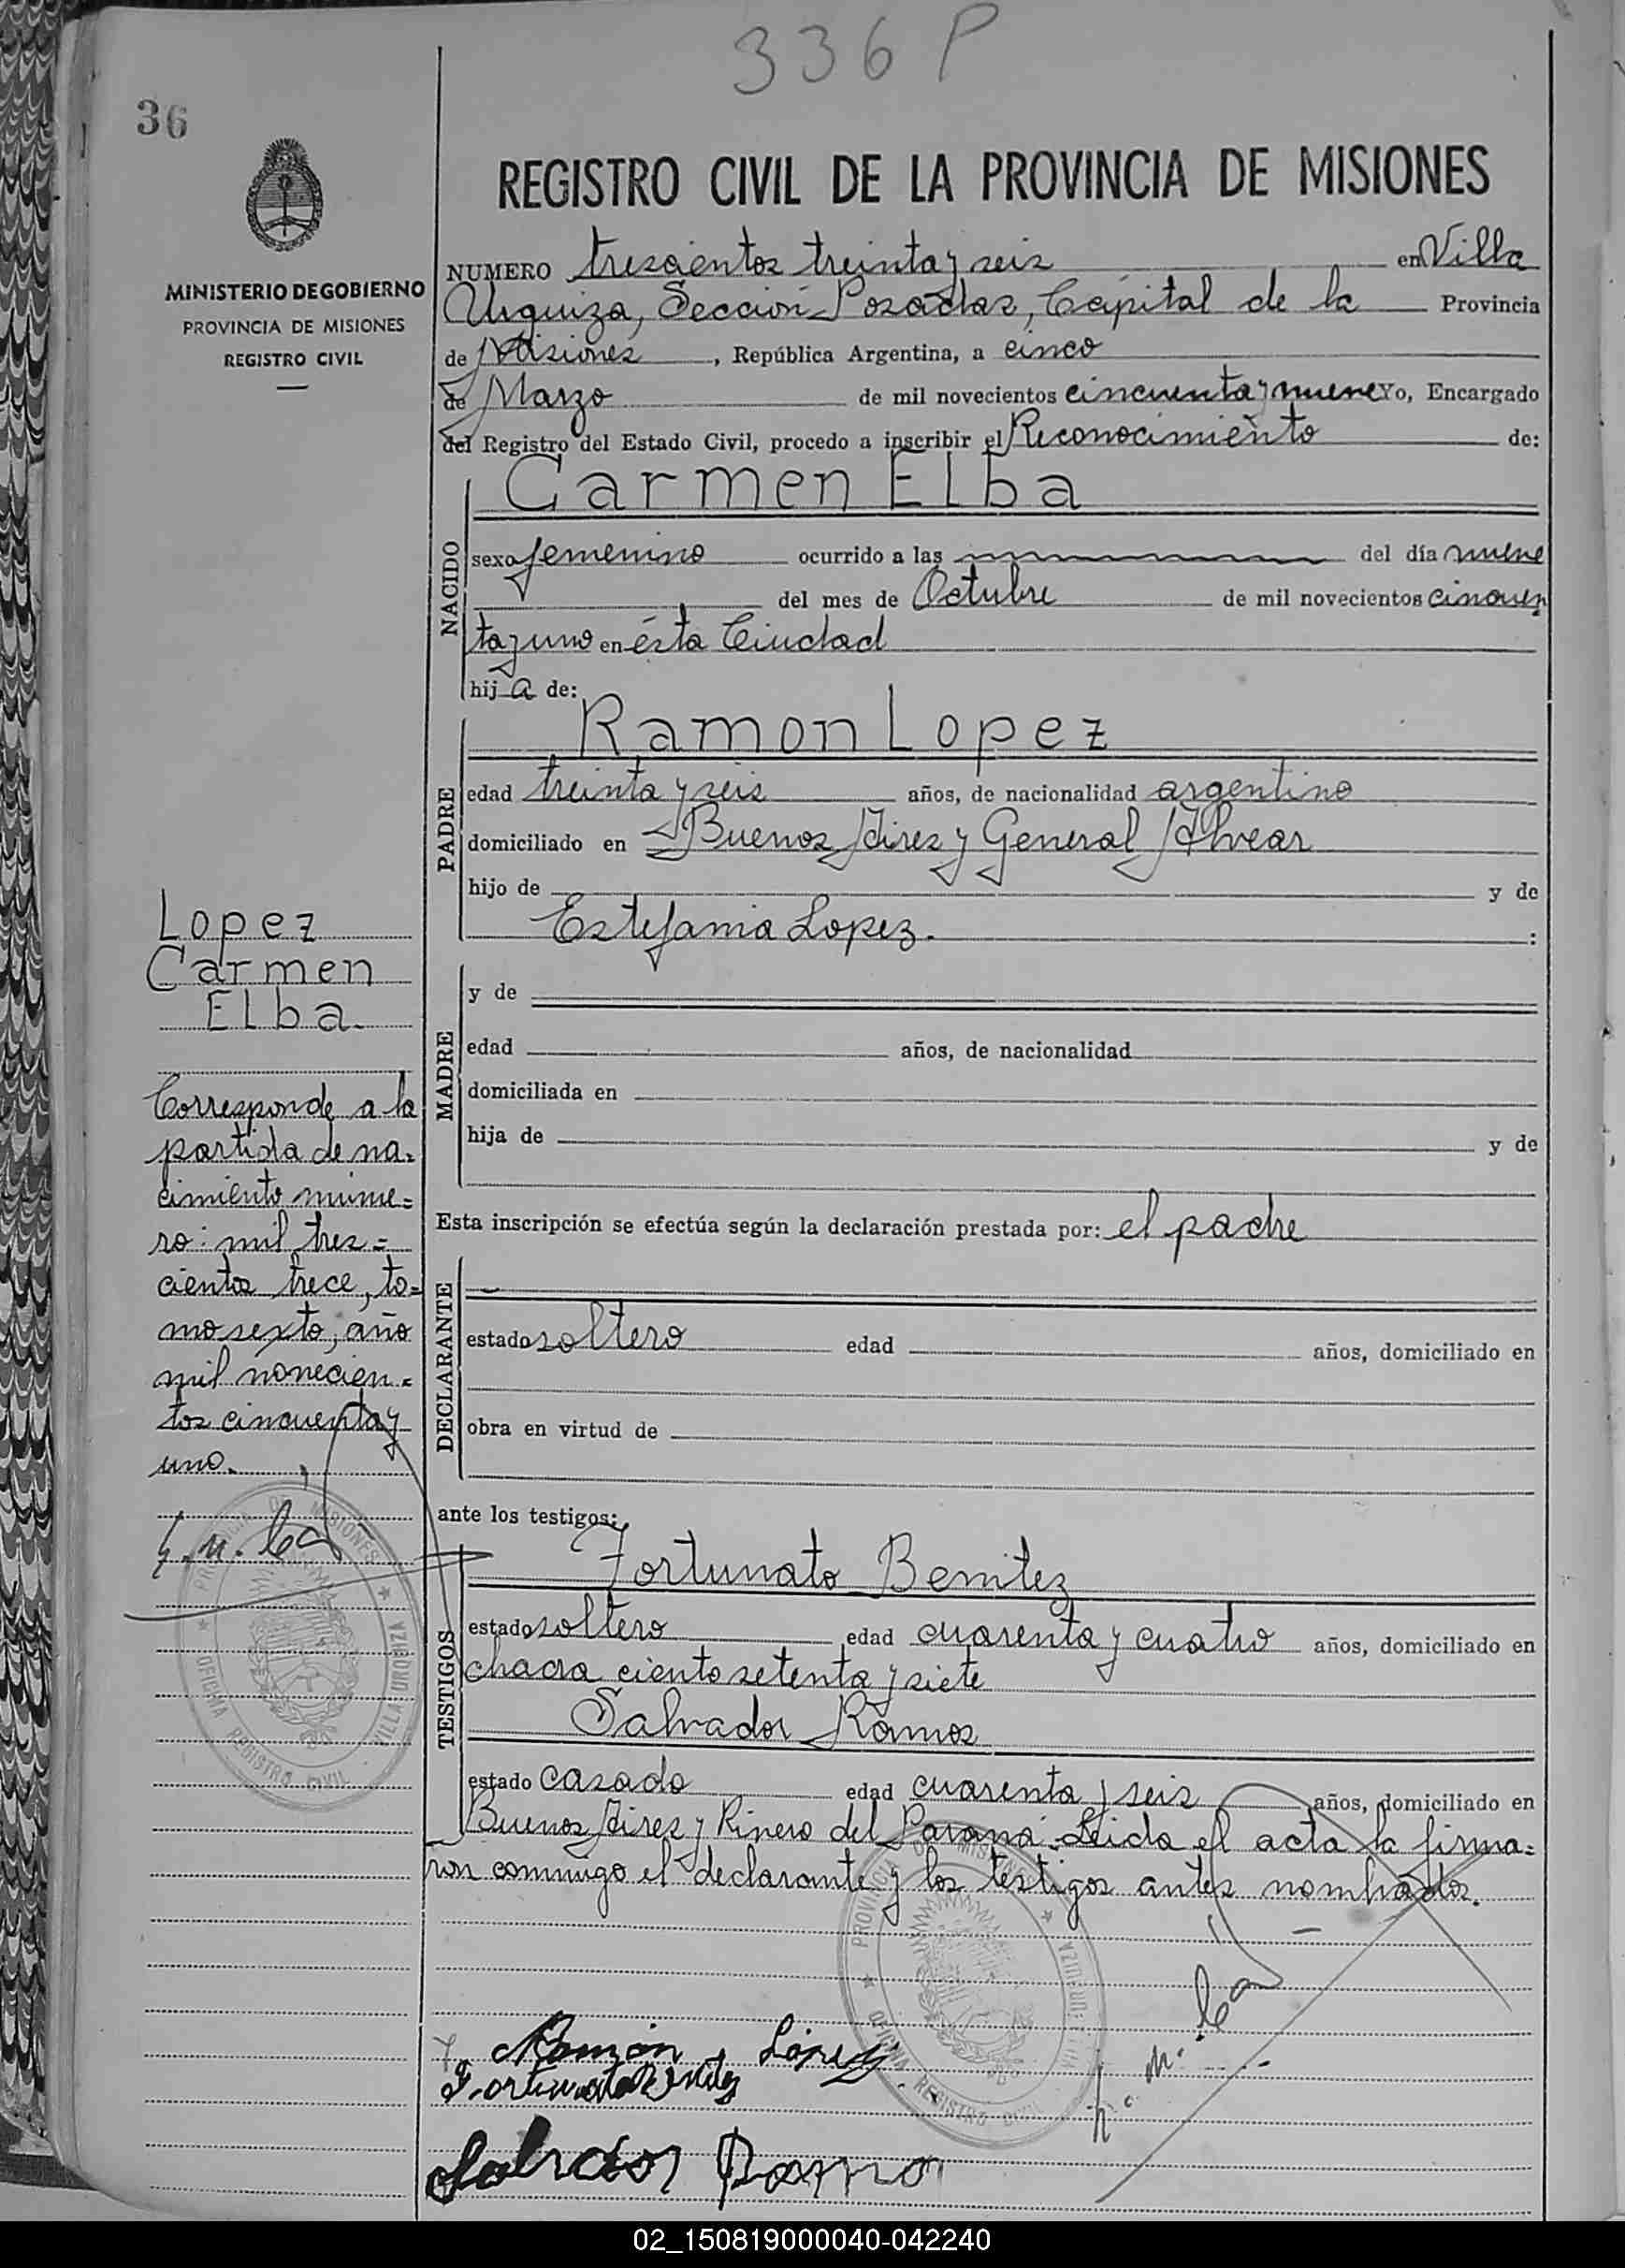 336 P
36
MINISTERIO DE GOBIERNO
PROVINCIA DE MISIONES
REGISTRO CIVIL
REGISTRO CIVIL DE LA PROVINCIA DE MISIONES
NUMERO trescientos treinta y seis en Villa
Urquiza, Sección Posadas, Capital de la Provincia
de Misiones, República Argentina, a cinco
de Marzo de mil novecientos cincuenta y nueve Yo, Encargado
del Registro del Estado Civil, procedo a inscribir el Reconocimiento de:
NACIDO
Carmen Elba
sexo femenino ocurrido a las del día nueve
del mes de Octubre de mil novecientos cincuen
ta y uno en ésta Ciudad
hija de:
PADRE
Ramon Lopez
edad treinta y seis años, de nacionalidad argentino
domiciliado en Buenos Aires y General Alvear
hijo de y de
Estefania Lopez. :
MADRE
y de
edad años, de nacionalidad
domiciliada en
hija de y de
Esta inscripción se efectúa según la declaración prestada por: el padre
DECLARANTE
estado soltero edad años, domiciliado en
obra en virtud de
ante los testigos:
TESTIGOS
Fortunato Benitez
estado soltero edad cuarenta y cuatro años, domiciliado en
chacra ciento setenta y siete
Salvador Ramos
estado casado edad cuarenta y seis años, domiciliado en
Buenos Aires y Rivera del Paraná. Leida el acta la firma=
ron conmigo el declarante y los testigos antes nombrados.
Lopez
Carmen
Elba.
Corresponde a la
partida de na=
cimiento núme=
ro: mil tres=
cientos trece, to=
mo sexto, año
mil novecien=
tos cincuenta y
uno.
PROVINCIA DE MISIONES
OFICINA REGISTRO CIVIL
VILLA URQUIZA
PROVINCIA DE MISIONES
OFICINA REGISTRO CIVIL
VILLA URQUIZA
Ramón López
Fortunato Benitez
Salvador Ramo
02_150819000040-042240